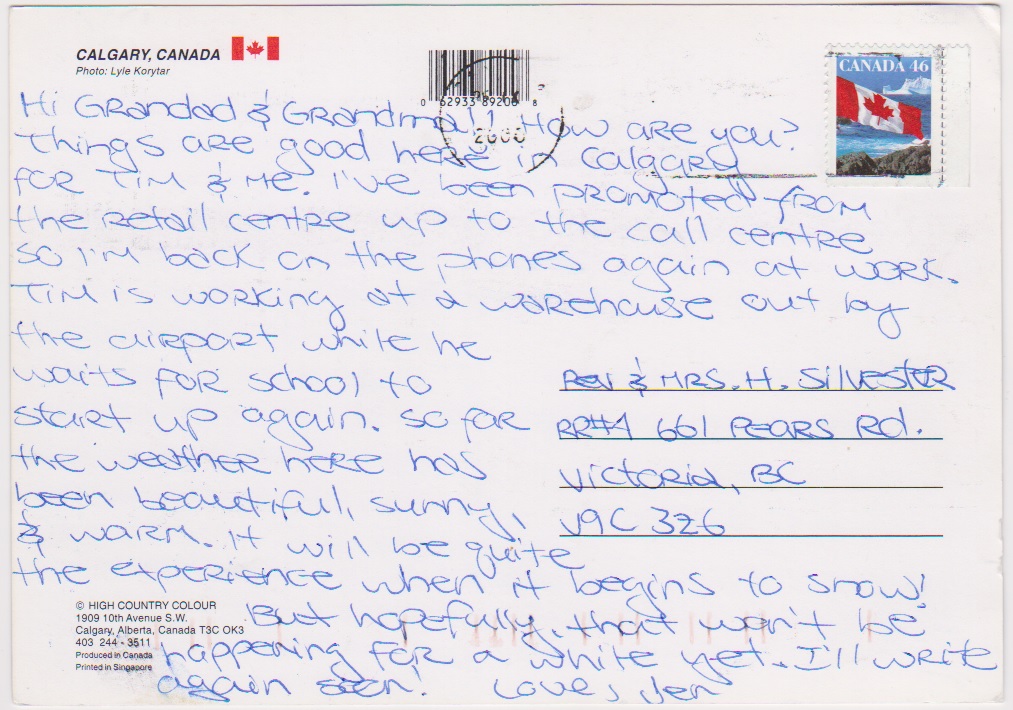 CALGARY, CANADA
Photo: Lyle Korytar
0 62933 89206 8
2000
CANADA 46
Hi Grandad & Grandma!! How are you?
Things are good here in Calgary
for Tim & me. I've been promoted from
the retail centre up to the call centre
so I'm back on the phones again at work.
Tim is working at a warehouse out by
the airport while he
waits for school to
start up again. So far
the weather here has
been beautiful, sunny,
& warm. It will be quite
the experience when it begins to snow!
But hopefully that won't be
happening for a while yet. I'll write
again soon! Love, Jen
Rev & Mrs. H. Silvester
RR#4 661 Pears Rd.
Victoria, BC
V9C 3Z6
© HIGH COUNTRY COLOUR
1909 10th Avenue S.W.
Calgary, Alberta, Canada T3C OK3
403 244-3511
Produced in Canada
Printed in Singapore